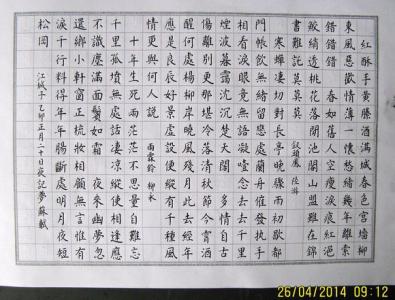 紅酥手黃藤酒滿城春色宮墻柳
東風惡歡情薄一懷愁緒幾年離索
錯錯錯 春如舊人空瘦淚痕紅浥
鮫綃透桃花落閒池閣山盟雖在錦
書難託莫莫莫 釵頭鳳 陸游
寒蟬淒切對長亭晚驟雨初歇都
門帳飲無緒留戀處蘭舟催發執手
相看淚眼竟無語凝噎念去去千里
煙波暮靄沉沉楚天闊 多情自古
傷離別更那堪冷落清秋節今宵酒
醒何處楊柳岸曉風殘月此去經年
應是良辰好景虛設便縱有千種風
情更與何人說 雨霖鈴 柳永
十年生死兩茫茫不思量自難忘
千里孤墳無處話淒涼縱使相逢應
不識塵滿面鬢如霜 夜來幽夢忽
還鄉小軒窗正梳妝相顧無言惟有
淚千行料得年年腸斷處明月夜短
松岡 江城子 乙卯正月二十日夜記夢 蘇軾
26/04/2014 09:12